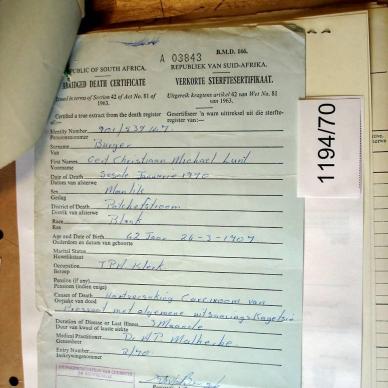 A 03843
B.M.D. 166.
REPUBLIC OF SOUTH AFRICA.
REPUBLIEK VAN SUID-AFRIKA.
ABRIDGED DEATH CERTIFICATE
VERKORTE STERFTESERTIFIKAAT.
Issued in terms of Section 42 of Act No. 81 of 1963.
Uitgereik kragtens artikel 42 van Wet No. 81 van 1963.
Certified a true extract from the death register of:—
Gesertifiseer 'n ware uittreksel uit die sterfteregister van:—
Identity Number
Persoonsnommer
Surname Burger
Van
First Names Christiaan Michael
Voorname
Date of Death Sesde Januarie 1970
Datum van afsterwe
Sex Manlik
Geslag
District of Death Potchefstroom
Distrik van afsterwe
Race Blank
Ras
Age and Date of Birth 62 Jaar 26-3-1907
Ouderdom en datum van geboorte
Marital Status
Huwelikstaat
Occupation Klerk
Beroep
Pension (if any)
Pensioen (indien enige)
Causes of Death Carcinoom van
Oorsake van dood
met algemene
Duration of Disease or Last Illness 3 Maande
Duur van kwaal of laaste siekte
Medical Practitioner Dr. Malherbe
Geneesheer
Entry Number 3/70
Inskrywingsnommer
1194/70